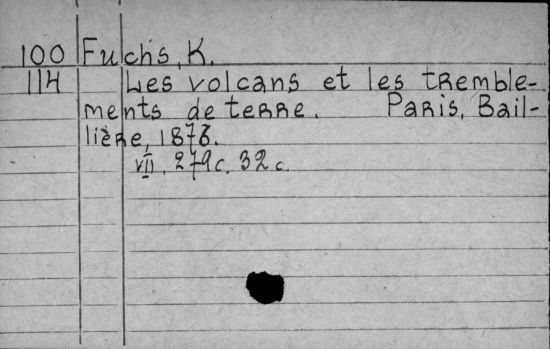 100 Fuchs, K.
114 Les volcans et les tremble-
ments de terre. Paris, Bail-
lière, 1878.
VII, 279 c. 32 c.